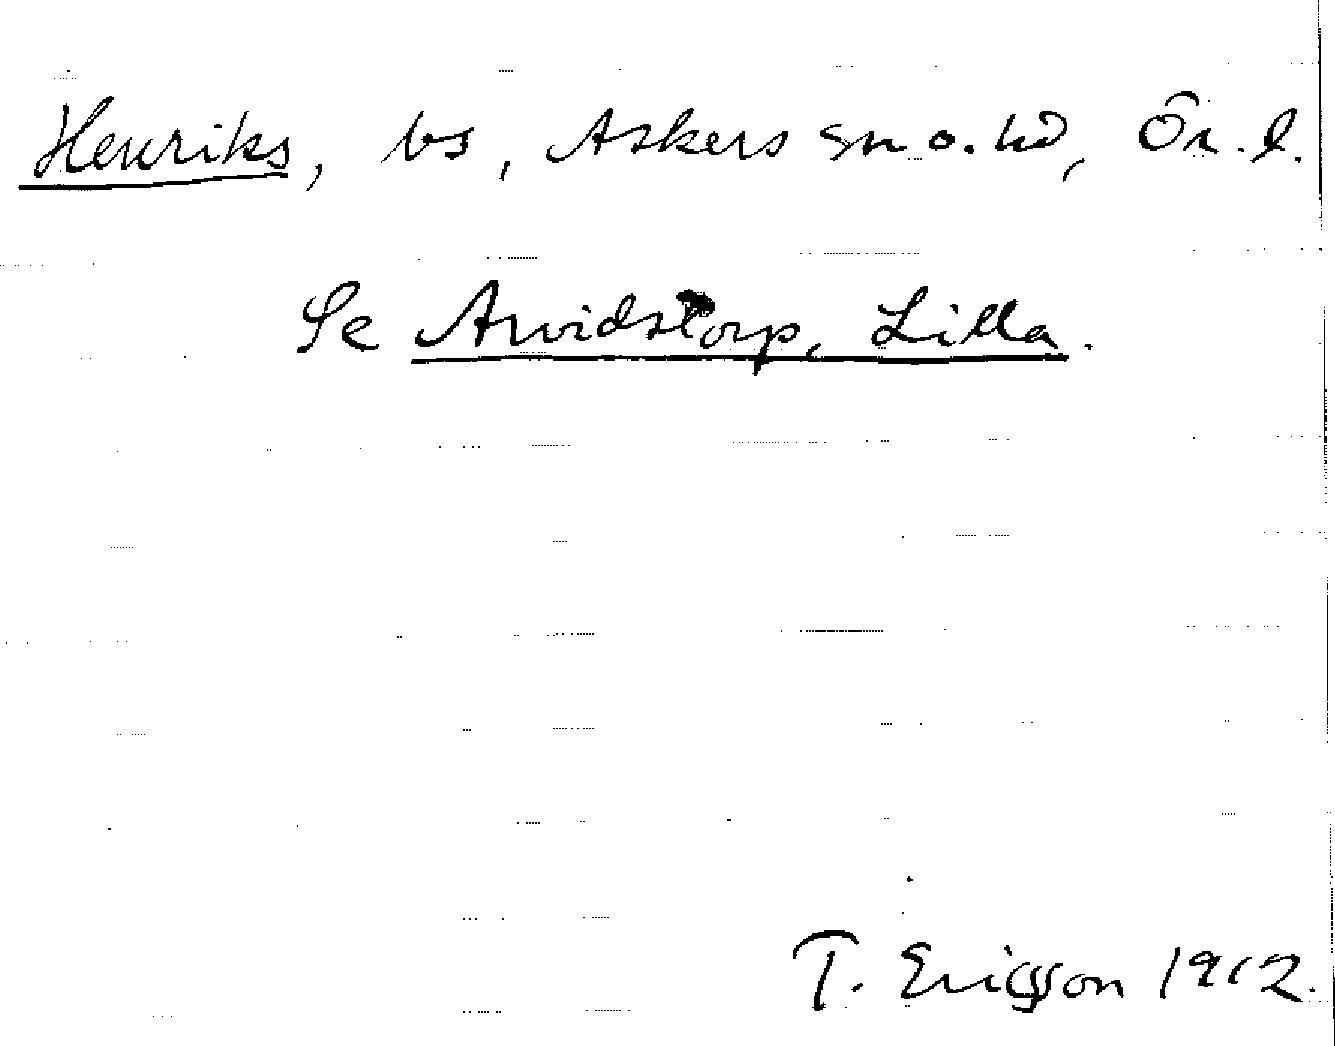 Henriks, bs, Askers sn o. hd, Ör. l.
Se Arvidstorp, Lilla.
T. Ericsson 1912.